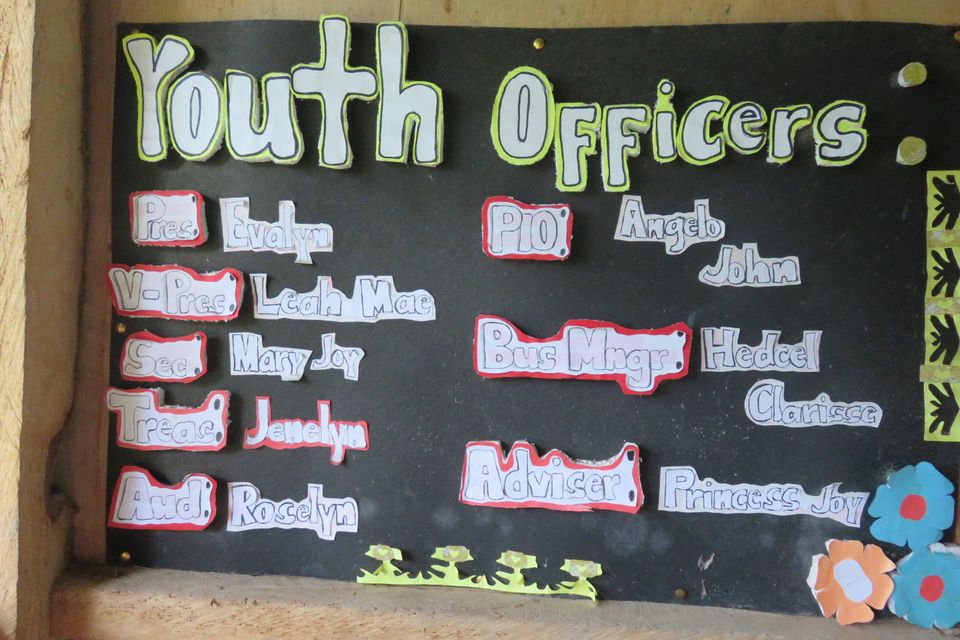 Youth Officers
Pres. Evalyn
V-Pres. Leah Mae
Sec. Mary Joy
Treas. Jenelyn
Aud. Roselyn
PIO: Angelo
John
Bus Mngr: Hedcel
Clarisse
Adviser: Princess Joy